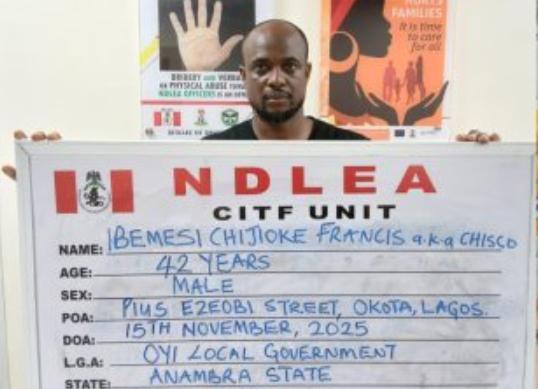 HURTS
FAMILIES
It is time
to care
for all
BRIBERY AND VERBAL
OR PHYSICAL ABUSE TOWARDS
NDLEA OFFICERS IS AN
NDLEA
CITF UNIT
NAME: IBEMESI CHIJIOKE FRANCIS a.k.a CHISCO
AGE: 42 YEARS
SEX: MALE
POA: PIUS EZEOBI STREET, OKOTA, LAGOS.
DOA: 15TH NOVEMBER, 2025
L.G.A: OYI LOCAL GOVERNMENT
STATE: ANAMBRA STATE